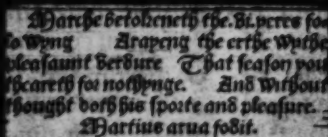 Marche betokeneth the .vi. yeres fo
lo wyng Arayeng the erthe wythe
pleasaunt verdure That season you
theareth for nothynge. And without
thought doth his sporte and pleasure.
Martius arua fodit.